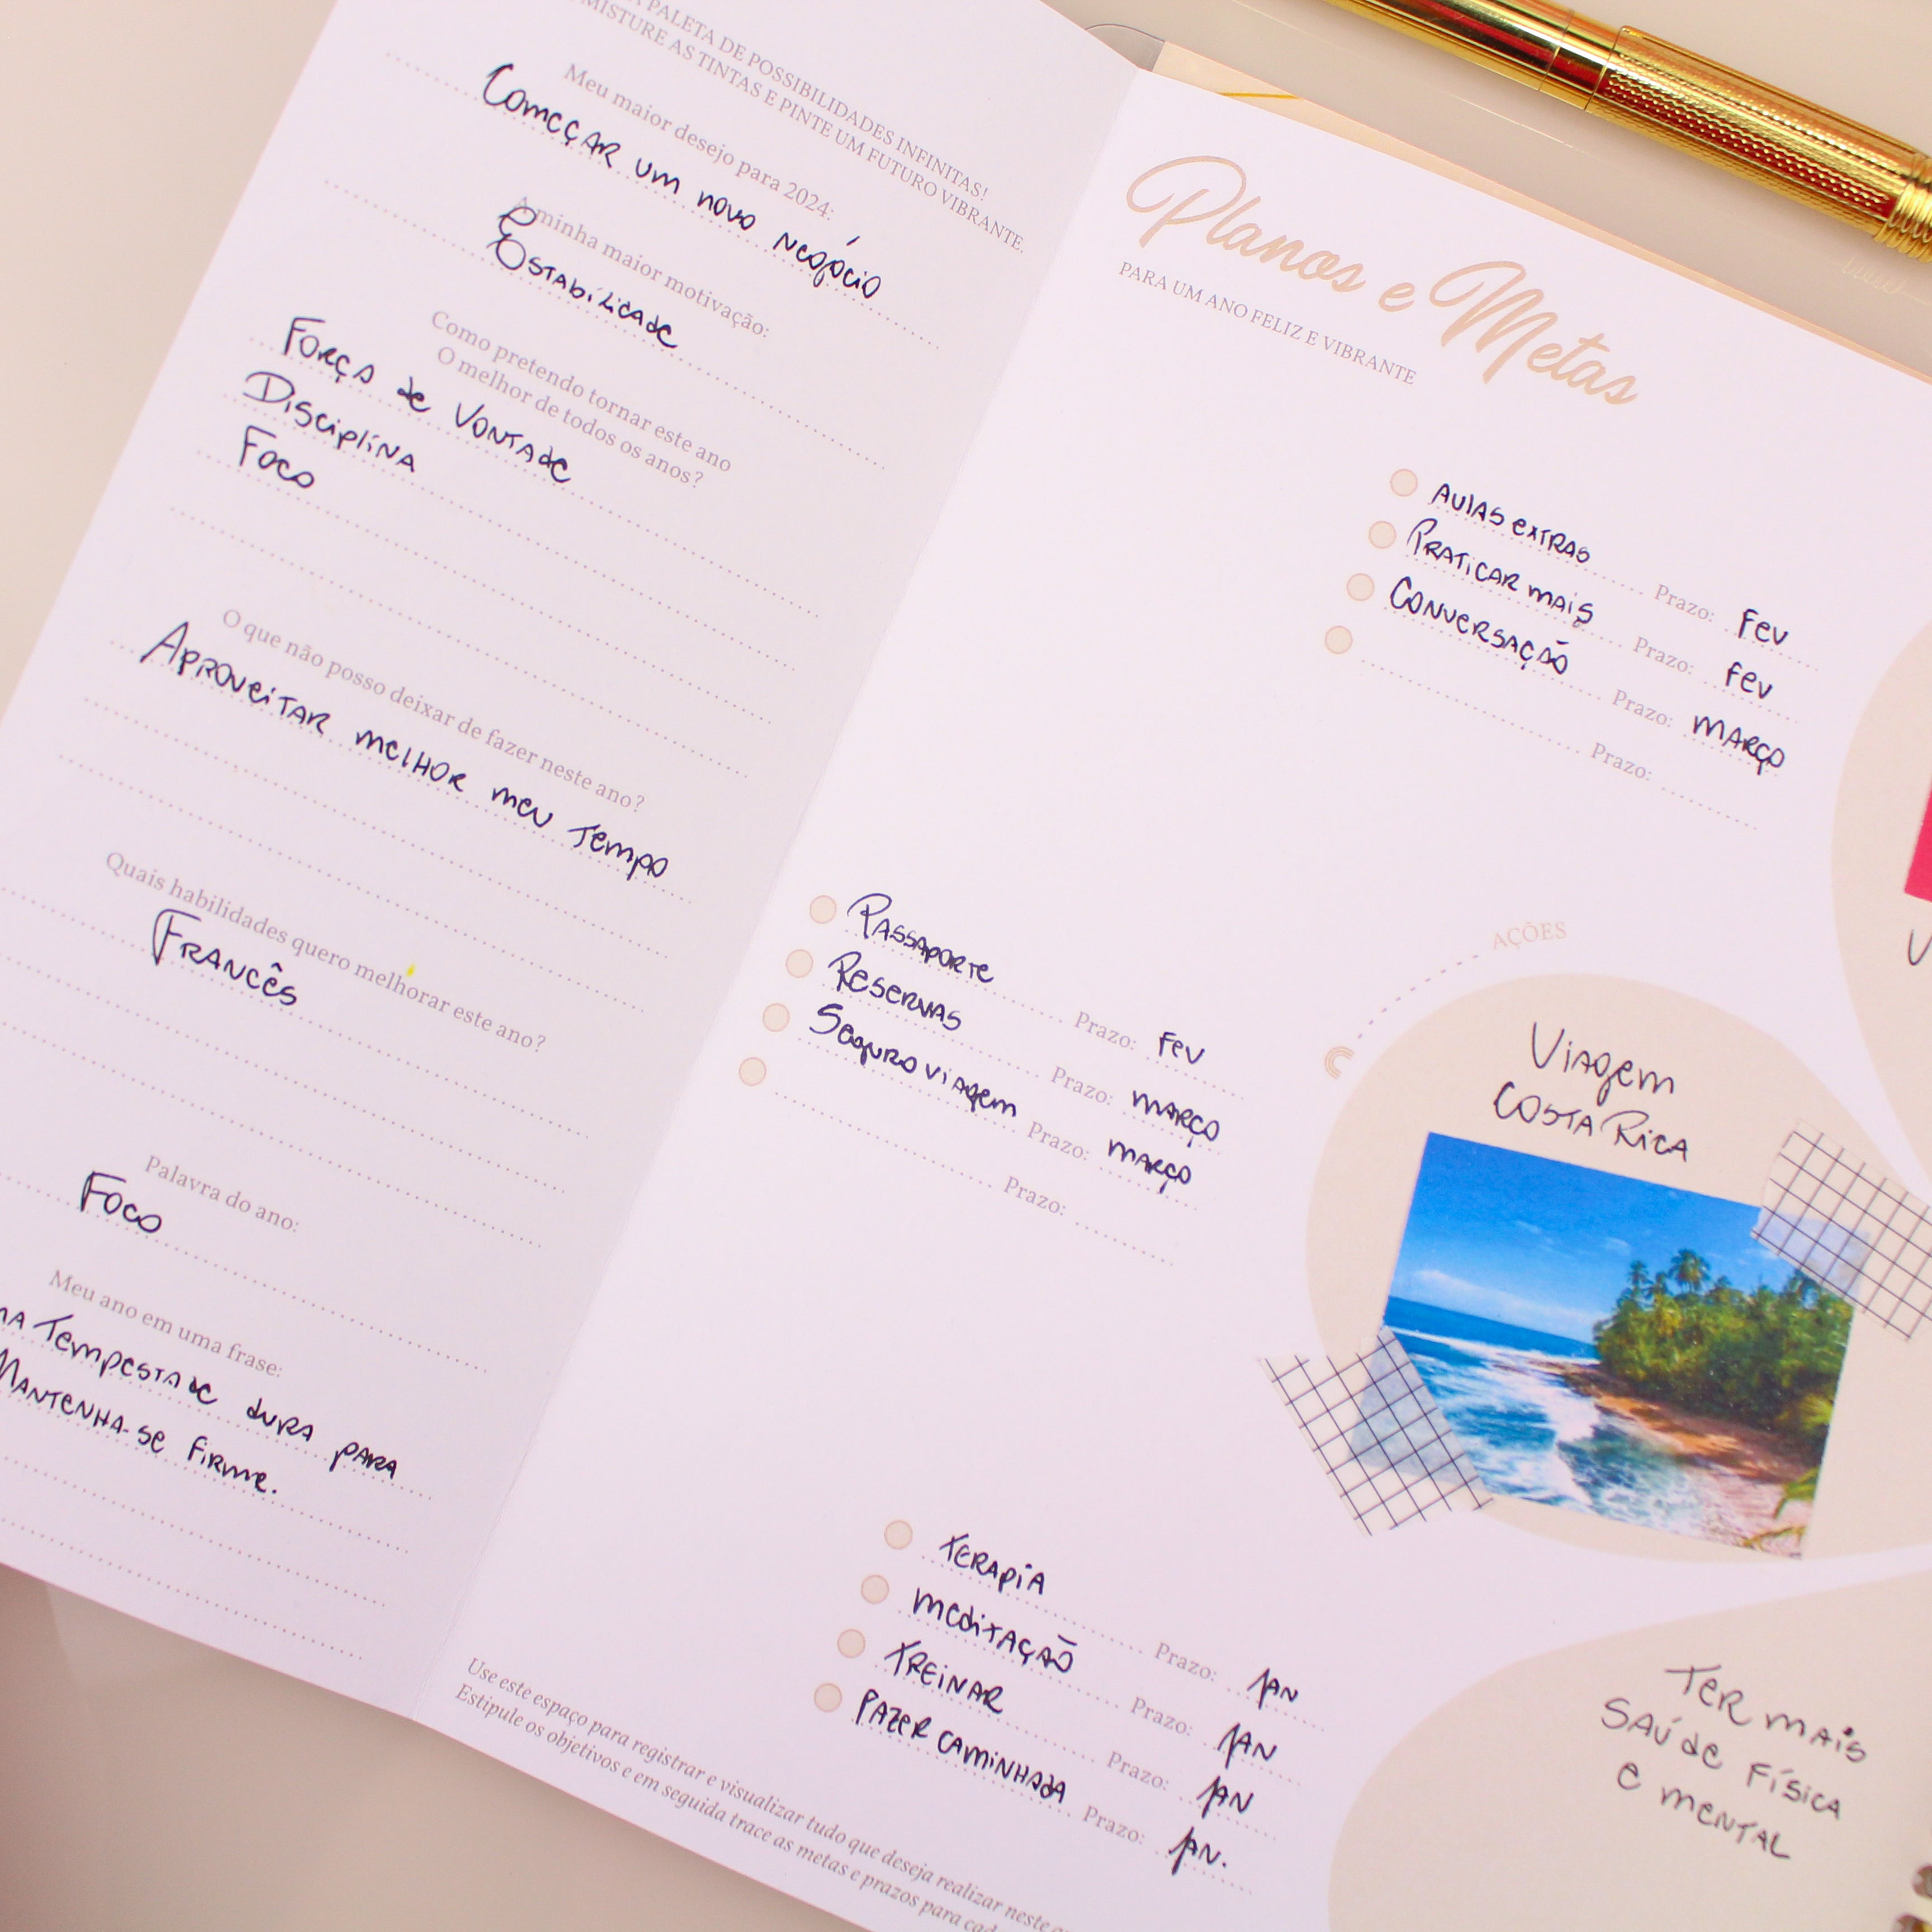 PALETA DE POSSIBILIDADES INFINITAS!
MISTURE AS TINTAS E PINTE UM FUTURO VIBRANTE.
Meu maior desejo para 2024:
Começar um novo negócio
A minha maior motivação:
Estabilidade
Como pretendo tornar este ano
O melhor de todos os anos?
Força de Vontade
Disciplina
Foco
O que não posso deixar de fazer neste ano?
Aproveitar melhor meu tempo
Quais habilidades quero melhorar este ano?
Francês
Palavra do ano:
Foco
Meu ano em uma frase:
Tempestade dura para
Mantenha-se firme.
Planos e Metas
PARA UM ANO FELIZ E VIBRANTE
Aulas extras Prazo: Fev
Praticar mais Prazo: Fev
Conversação Prazo: março
Prazo:
AÇÕES
Passaporte Prazo: Fev
Reservas Prazo: março
Seguro viagem Prazo: março
Prazo:
Viagem
Costa Rica
Terapia Prazo: Jan
meditação Prazo: Jan
Treinar Prazo: Jan
Fazer caminhada Prazo: Jan.
Ter mais
saúde física
e mental
Use este espaço para registrar e visualizar tudo que deseja realizar neste
Estipule os objetivos e em seguida trace as metas e prazos para